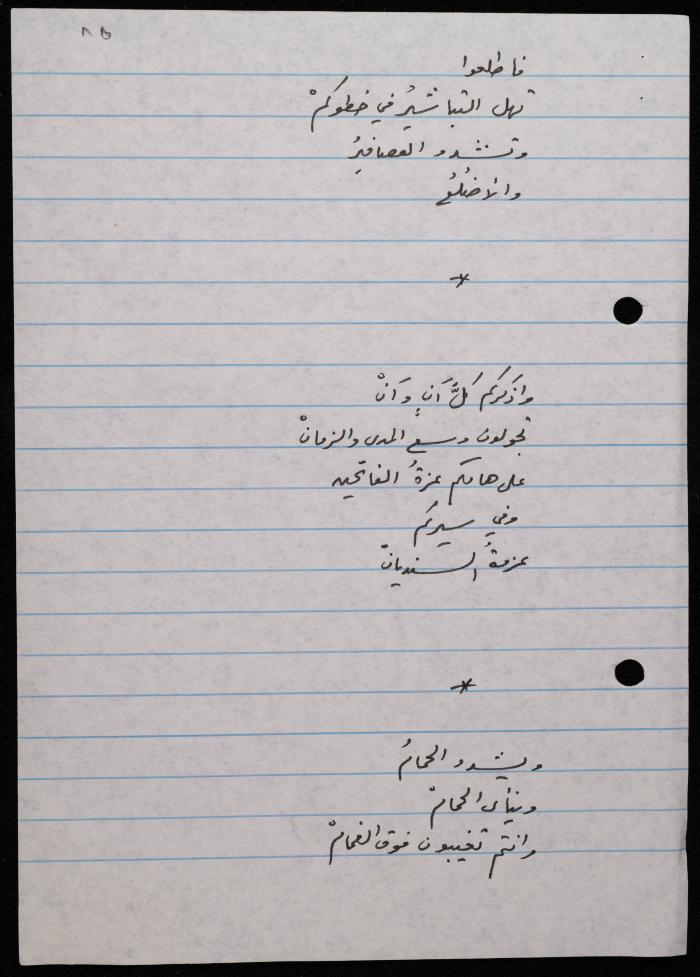 فاطلعوا
تهل التباشيرُ في خطوكمْ
وتشدو العصافيرُ
والأضلُعُ
*
واذكركم كلَّ آنٍ وَآنْ
تجولون وسع المدى والزمانْ
على هامكم عزةُ الفاتحين
وفي سيركم
عزمةُ السنديانْ
*
ويشدو الحمامُ
وينأى الحمامْ
وانتم تغيبون فوق الغمامْ